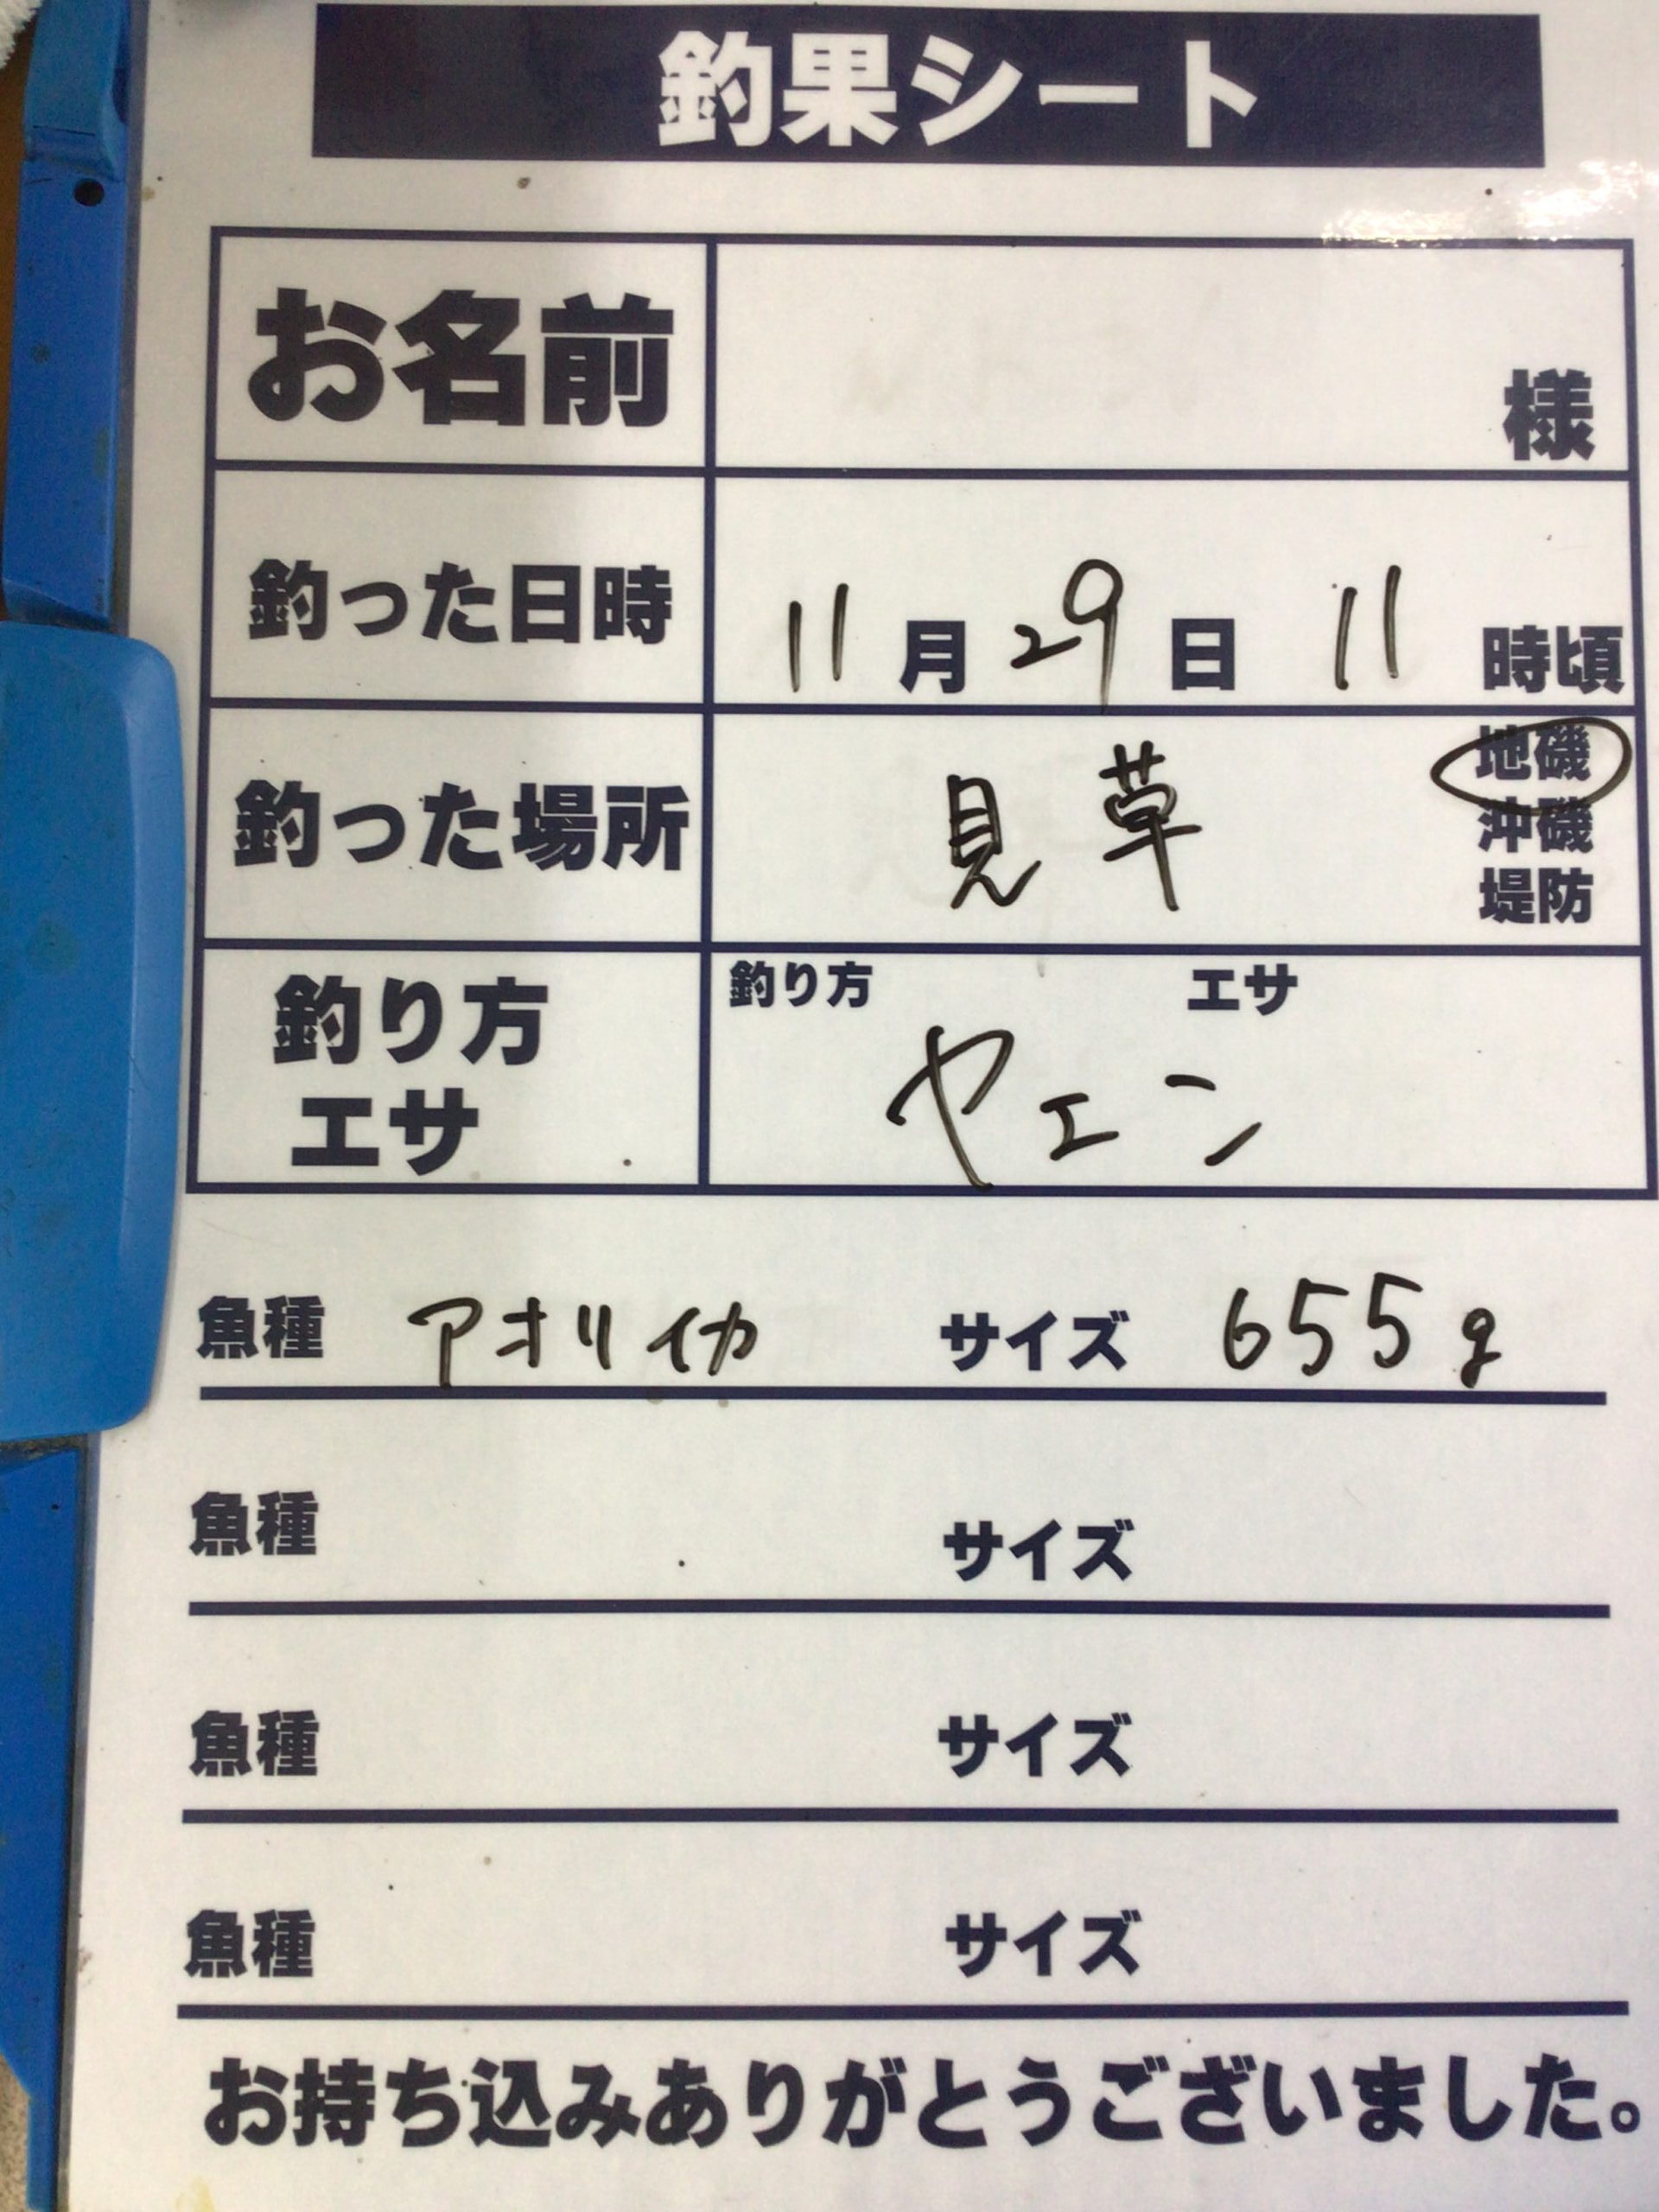 釣果シート
お名前 様
釣った日時 11月29日 11時頃
釣った場所 見草 地磯
沖磯
堤防
釣り方 エサ
釣り方
エサ ヤエン
魚種 アオリイカ サイズ 655g
魚種 サイズ
魚種 サイズ
魚種 サイズ
お持ち込みありがとうございました。